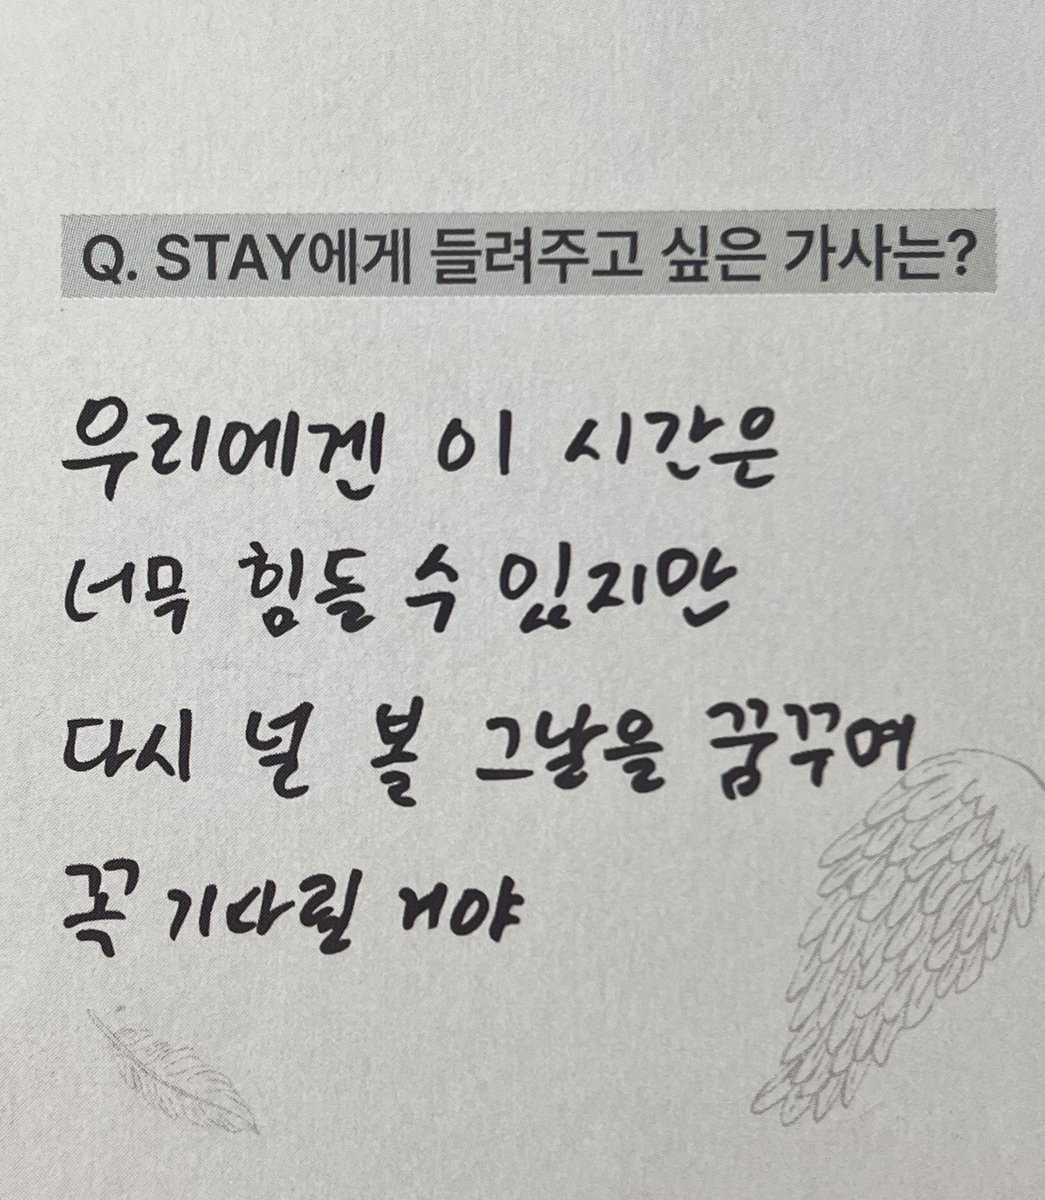 Q. STAY에게 들려주고 싶은 가사는?
우리에겐 이 시간은
너무 힘들 수 있지만
다시 널 볼 그날을 꿈꾸며
꼭 기다릴 거야